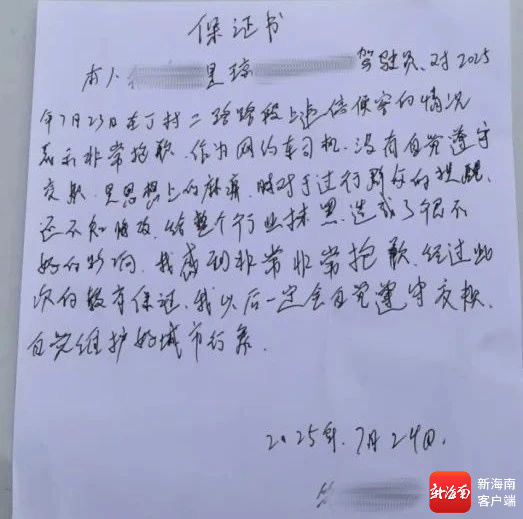 保证书
本人 是琼 驾驶员、对2025
年7月23日在丁村二路路段上违停便客的情况
表示非常抱歉、作为网约车司机、没有自觉遵守
交规、是思想上的麻痹、时对于过行群众的提醒、
还不知悔改、给整个行业抹黑、造成了很不
好的影响、我感到非常非常抱歉、经过此
次的教育保证、我以后一定会自觉遵守交规、
自觉维护好城市形象、
2025年、7月24日、
新海南
新海南
客户端